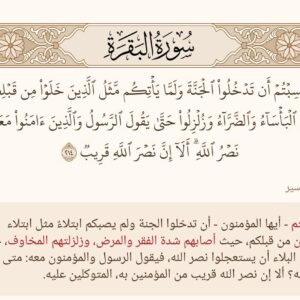 سُورَةُ البَقَرَةِ
سِبْتُمْ أَن تَدْخُلُوا۟ ٱلْجَنَّةَ وَلَمَّا يَأْتِكُم مَّثَلُ ٱلَّذِينَ خَلَوْا۟ مِن قَبْلِ
ٱلْبَأْسَآءُ وَٱلضَّرَّآءُ وَزُلْزِلُوا۟ حَتَّىٰ يَقُولَ ٱلرَّسُولُ وَٱلَّذِينَ ءَامَنُوا۟ مَعَ
نَصْرُ ٱللَّهِ ۗ أَلَآ إِنَّ نَصْرَ ٱللَّهِ قَرِيبٌ ٢١٤
سير
م - أيها المؤمنون - أن تدخلوا الجنة ولم يصبكم ابتلاءٌ مثل ابتلاء
ن من قبلكم، حيث أصابهم شدة الفقر والمرض، وزلزلتهم المخاوف،
البلاء أن يستعجلوا نصر الله، فيقول الرسول والمؤمنون معه: متى
ه؟ ألا إن نصر الله قريب من المؤمنين به، المتوكلين عليه.